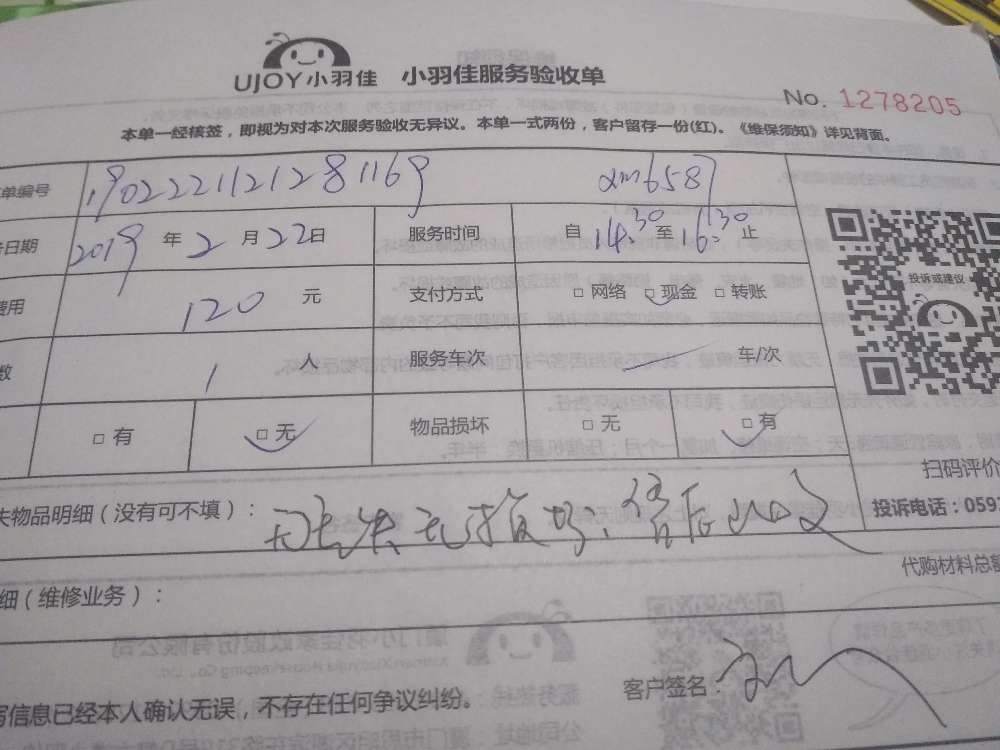 UJOY小羽佳 小羽佳服务验收单
No. 1278205
本单一经核签，即视为对本次服务验收无异议。本单一式两份，客户留存一份(红)。《维保须知》详见背面。
单编号 1902221121281169 xm6587
日期 2019 年 2 月 22 日 服务时间 自 14:30 至 16:30 止
费用 120 元 支付方式 □ 网络 □ 现金 □ 转账
数 1 人 服务车次 车/次
□ 有 □ 无 物品损坏 □ 无 □ 有
投诉或建议
扫码评价
失物品明细（没有可不填）： 无丢失 无损坏
投诉电话：059
代购材料总额
细（维修业务）：
客户签名：
写信息已经本人确认无误，不存在任何争议纠纷。